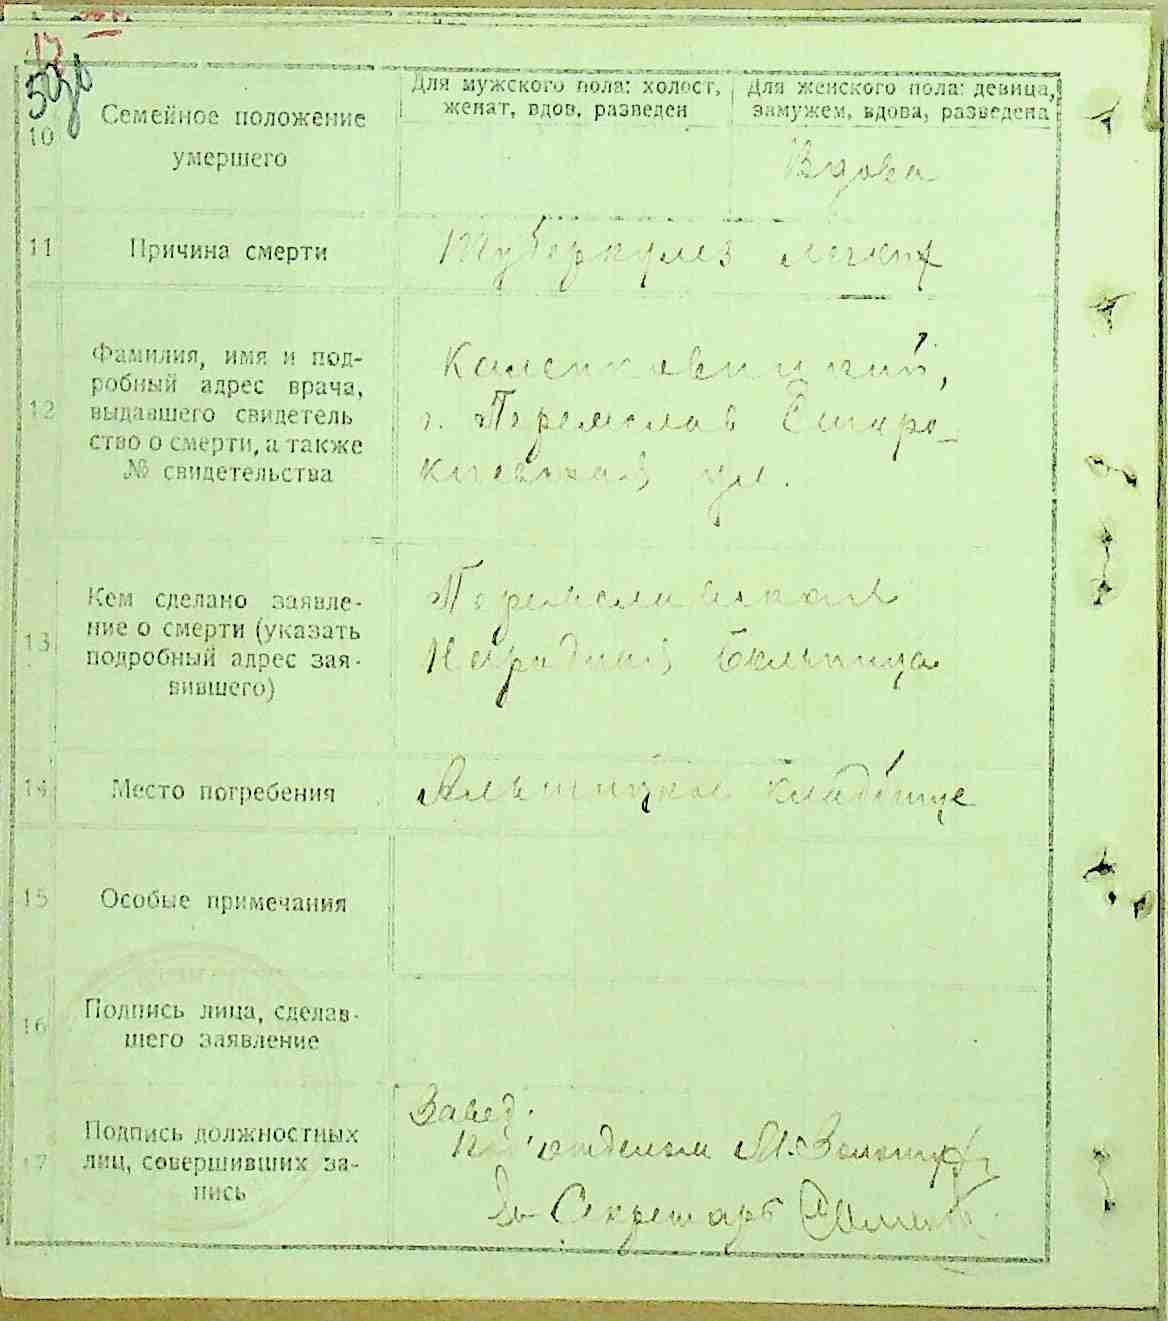 17
10
Семейное положение
умершего
Для мужского пола: холост,
женат, вдов, разведен
Для женского пола: девица,
замужем, вдова, разведена
Вдова
11
Причина смерти
Туберкулез легких
12
Фамилия, имя и под-
робный адрес врача,
выдавшего свидетель
ство о смерти, а также
№ свидетельства
г. Переяслав Старо-
киевская ул.
13
Кем сделано заявле-
ние о смерти (указать
подробный адрес зая-
вившего)
Переяславская
Народная больница
14
Место погребения
кладбище
15
Особые примечания
16
Подпись лица, сделав-
шего заявление
17
Подпись должностных
лиц, совершивших за-
пись
Завед.
отделом
Секретарь